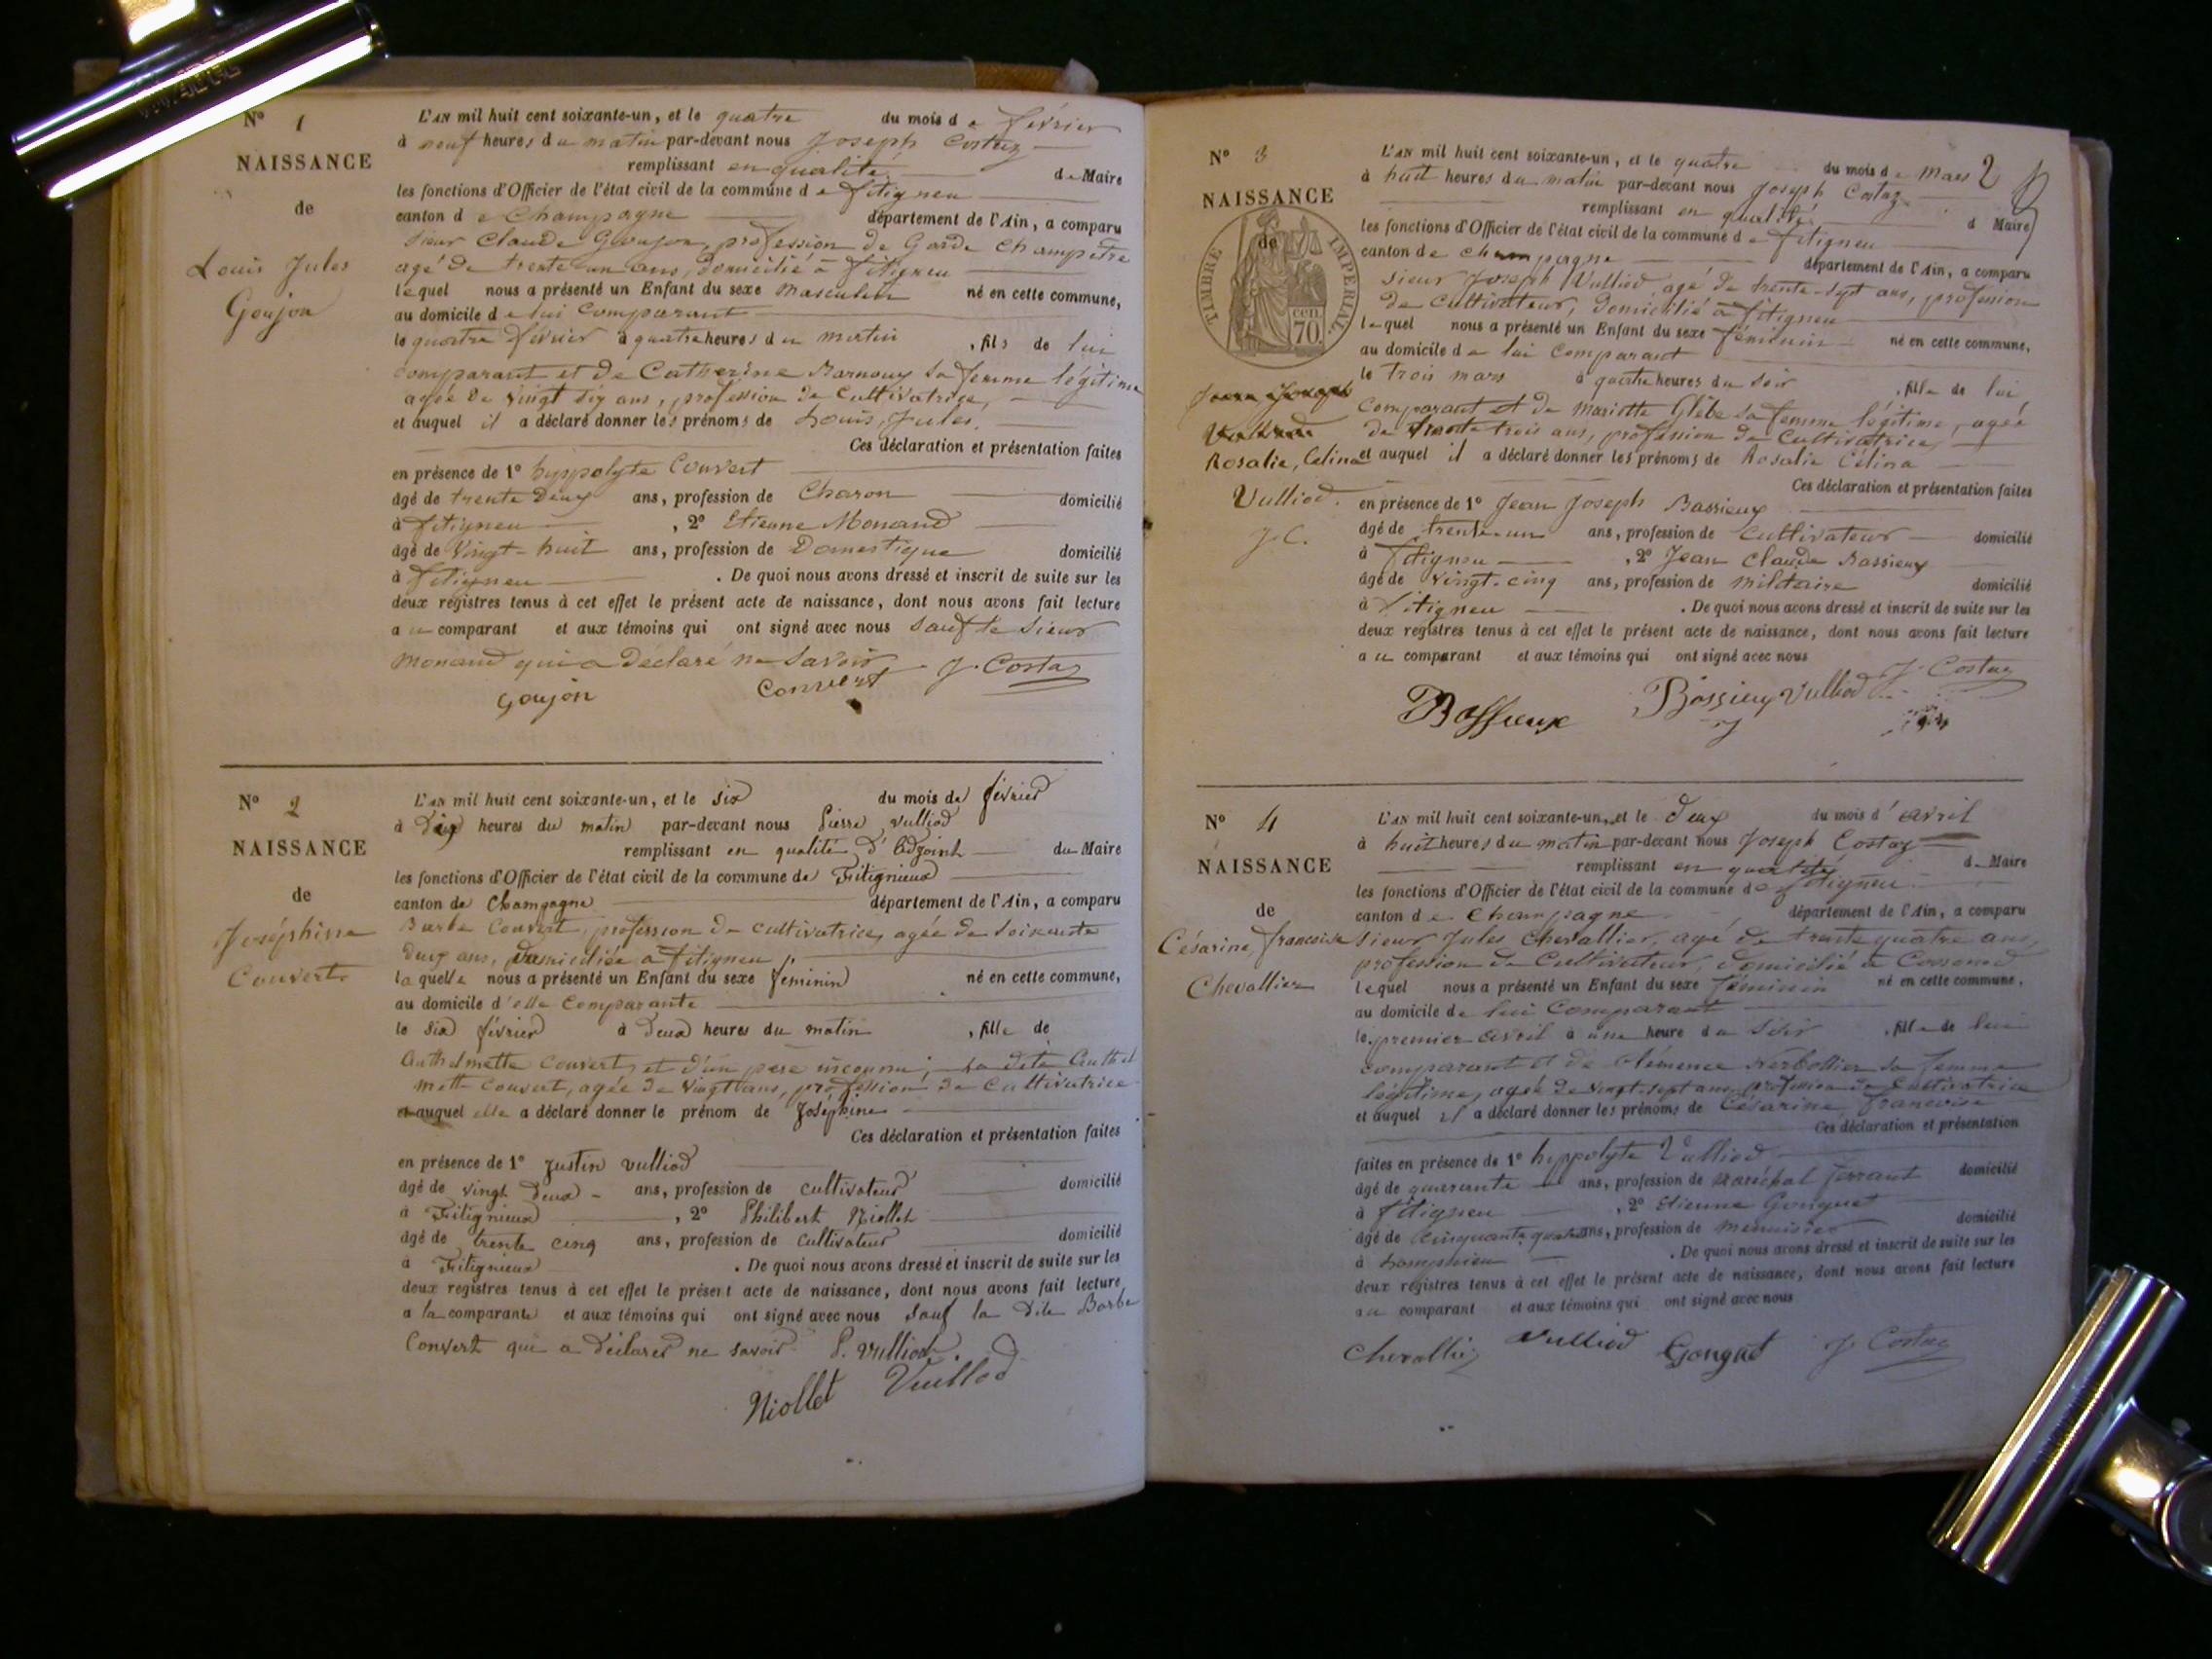 N° 1
NAISSANCE
de
Louis Jules
Goujon
L'AN mil huit cent soixante-un, et le quatre du mois de février
à neuf heures du matin par-devant nous Joseph Costaz
remplissant en qualité de Maire
les fonctions d'Officier de l'état civil de la commune de fitigneu
canton de Champagne département de l'Ain, a comparu
sieur Claude Goujon, profession de Garde Champêtre
agé de trente un ans, domicilié à fitigneu
lequel nous a présenté un Enfant du sexe masculin né en cette commune,
au domicile de lui Comparant
le quatre février à quatre heures du matin , fils de lui
comparant et de Catherine sa femme légitime
agée de vingt six ans, profession de Cultivatrice,
et auquel il a déclaré donner les prénoms de Louis, Jules.
Ces déclaration et présentation faites
en présence de 1° hyppolyte Convert
âgé de trente Deux ans, profession de Charon domicilié
à fitigneu , 2° Etienne Monand
âgé de Vingt-huit ans, profession de Domestique domicilié
à fitigneu . De quoi nous avons dressé et inscrit de suite sur les
deux registres tenus à cet effet le présent acte de naissance, dont nous avons fait lecture
au comparant et aux témoins qui ont signé avec nous sauf le sieur
monand qui a déclaré ne savoir. J. Costaz
Goujon Convert
N° 2
NAISSANCE
de
Joséphine
Convert
L'AN mil huit cent soixante-un, et le six du mois de février
à Dix heures du matin par-devant nous Pierre Vulliod
remplissant en qualité d'Adjoint du Maire
les fonctions d'Officier de l'état civil de la commune de Fitignieux
canton de Champagne département de l'Ain, a comparu
Barbe Convert, profession de cultivatrice, agée de soixante
deux ans, domiciliée à fitigneu,
laquelle nous a présenté un Enfant du sexe feminin né en cette commune,
au domicile d'elle Comparante
le six février à deux heures du matin , fille de
Anthelmette Convert, et d'un père inconnu, la dite Anthel
mette Convert, agée de vingt ans, profession de Cultivatrice
et auquel elle a déclaré donner le prénom de Joséphine
Ces déclaration et présentation faites
en présence de 1° Justin Vulliod
âgé de vingt deux ans, profession de cultivateur domicilié
à Fitignieux , 2° Philibert Niollet
âgé de trente cinq ans, profession de Cultivateur domicilié
à Fitignieux . De quoi nous avons dressé et inscrit de suite sur les
deux registres tenus à cet effet le présent acte de naissance, dont nous avons fait lecture
a la comparante et aux témoins qui ont signé avec nous sauf la dite Barbe
Convert qui a déclarer ne savoir P. Vulliod.
Niollet Vuillod
N° 3
NAISSANCE
TIMBRE IMPÉRIAL
de
70 cen.
Rosalie, Celina
Vulliod.
J. C.
L'AN mil huit cent soixante-un, et le quatre du mois de mars 2
à huit heures du matin par-devant nous Joseph Costaz
remplissant en qualité d Maire
les fonctions d'Officier de l'état civil de la commune de fitigneu
canton de champagne département de l'Ain, a comparu
sieur Joseph Vulliod, agé de trente-sept ans, profession
de Cultivateur, domicilié à fitigneu
lequel nous a présenté un Enfant du sexe féminin né en cette commune,
au domicile de lui Comparant
le trois mars à quatre heures du soir , fille de lui
Comparant et de mariette Glèbe sa femme légitime, agée
de trente trois ans, profession de Cultivatrice,
et auquel il a déclaré donner les prénoms de Rosalie Célina
Ces déclaration et présentation faites
en présence de 1° Jean Joseph Bassieux
âgé de trente-un ans, profession de Cultivateur domicilié
à fitigneu , 2° Jean Claude Bassieux
âgé de Vingt-cinq ans, profession de militaire domicilié
à fitigneu . De quoi nous avons dressé et inscrit de suite sur les
deux registres tenus à cet effet le présent acte de naissance, dont nous avons fait lecture
au comparant et aux témoins qui ont signé avec nous
Bassieux Bossieux Vulliod J. Costaz
N° 4
NAISSANCE
de
Césarine, françoise
Chevallier
L'AN mil huit cent soixante-un, et le deux du mois d'avril
à huit heures du matin par-devant nous Joseph Costaz
remplissant en qualité de Maire
les fonctions d'Officier de l'état civil de la commune de fitigneu
canton de Champagne département de l'Ain, a comparu
sieur Jules Chevallier, agé de trente quatre ans,
profession de Cultivateur, domicilié à
lequel nous a présenté un Enfant du sexe féminin né en cette commune,
au domicile de lui Comparant
le premier avril à une heure du soir , fille de lui
comparant et de Clémence sa femme
légitime, agée de vingt-sept ans, profession de Cultivatrice
et auquel il a déclaré donner les prénoms de Césarine françoise
Ces déclaration et présentation
faites en présence de 1° hyppolyte Vulliod
âgé de quarante ans, profession de Maréchal ferrant domicilié
à fitigneu , 2° Etienne Gonguet
âgé de Cinquante quatre ans, profession de menuisier domicilié
à . De quoi nous avons dressé et inscrit de suite sur les
deux registres tenus à cet effet le présent acte de naissance, dont nous avons fait lecture
au comparant et aux témoins qui ont signé avec nous
Chevallier Vulliod Gonguet J. Costaz